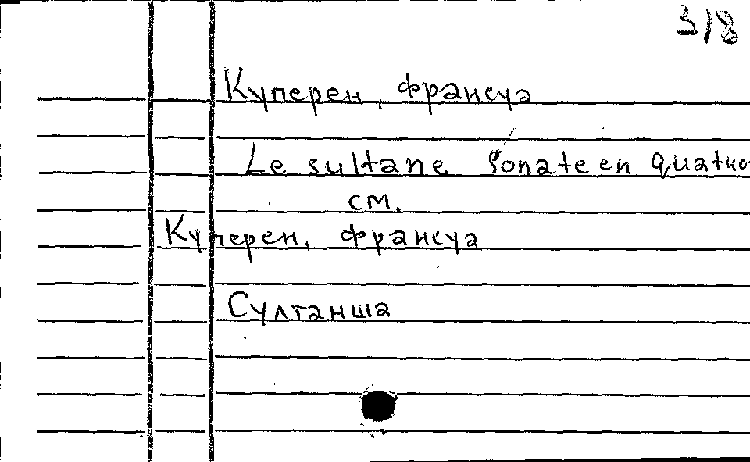 318
Куперен, Франсуа
Le sultane Sonate en quatuo
см.
Куперен, Франсуа
Султанша